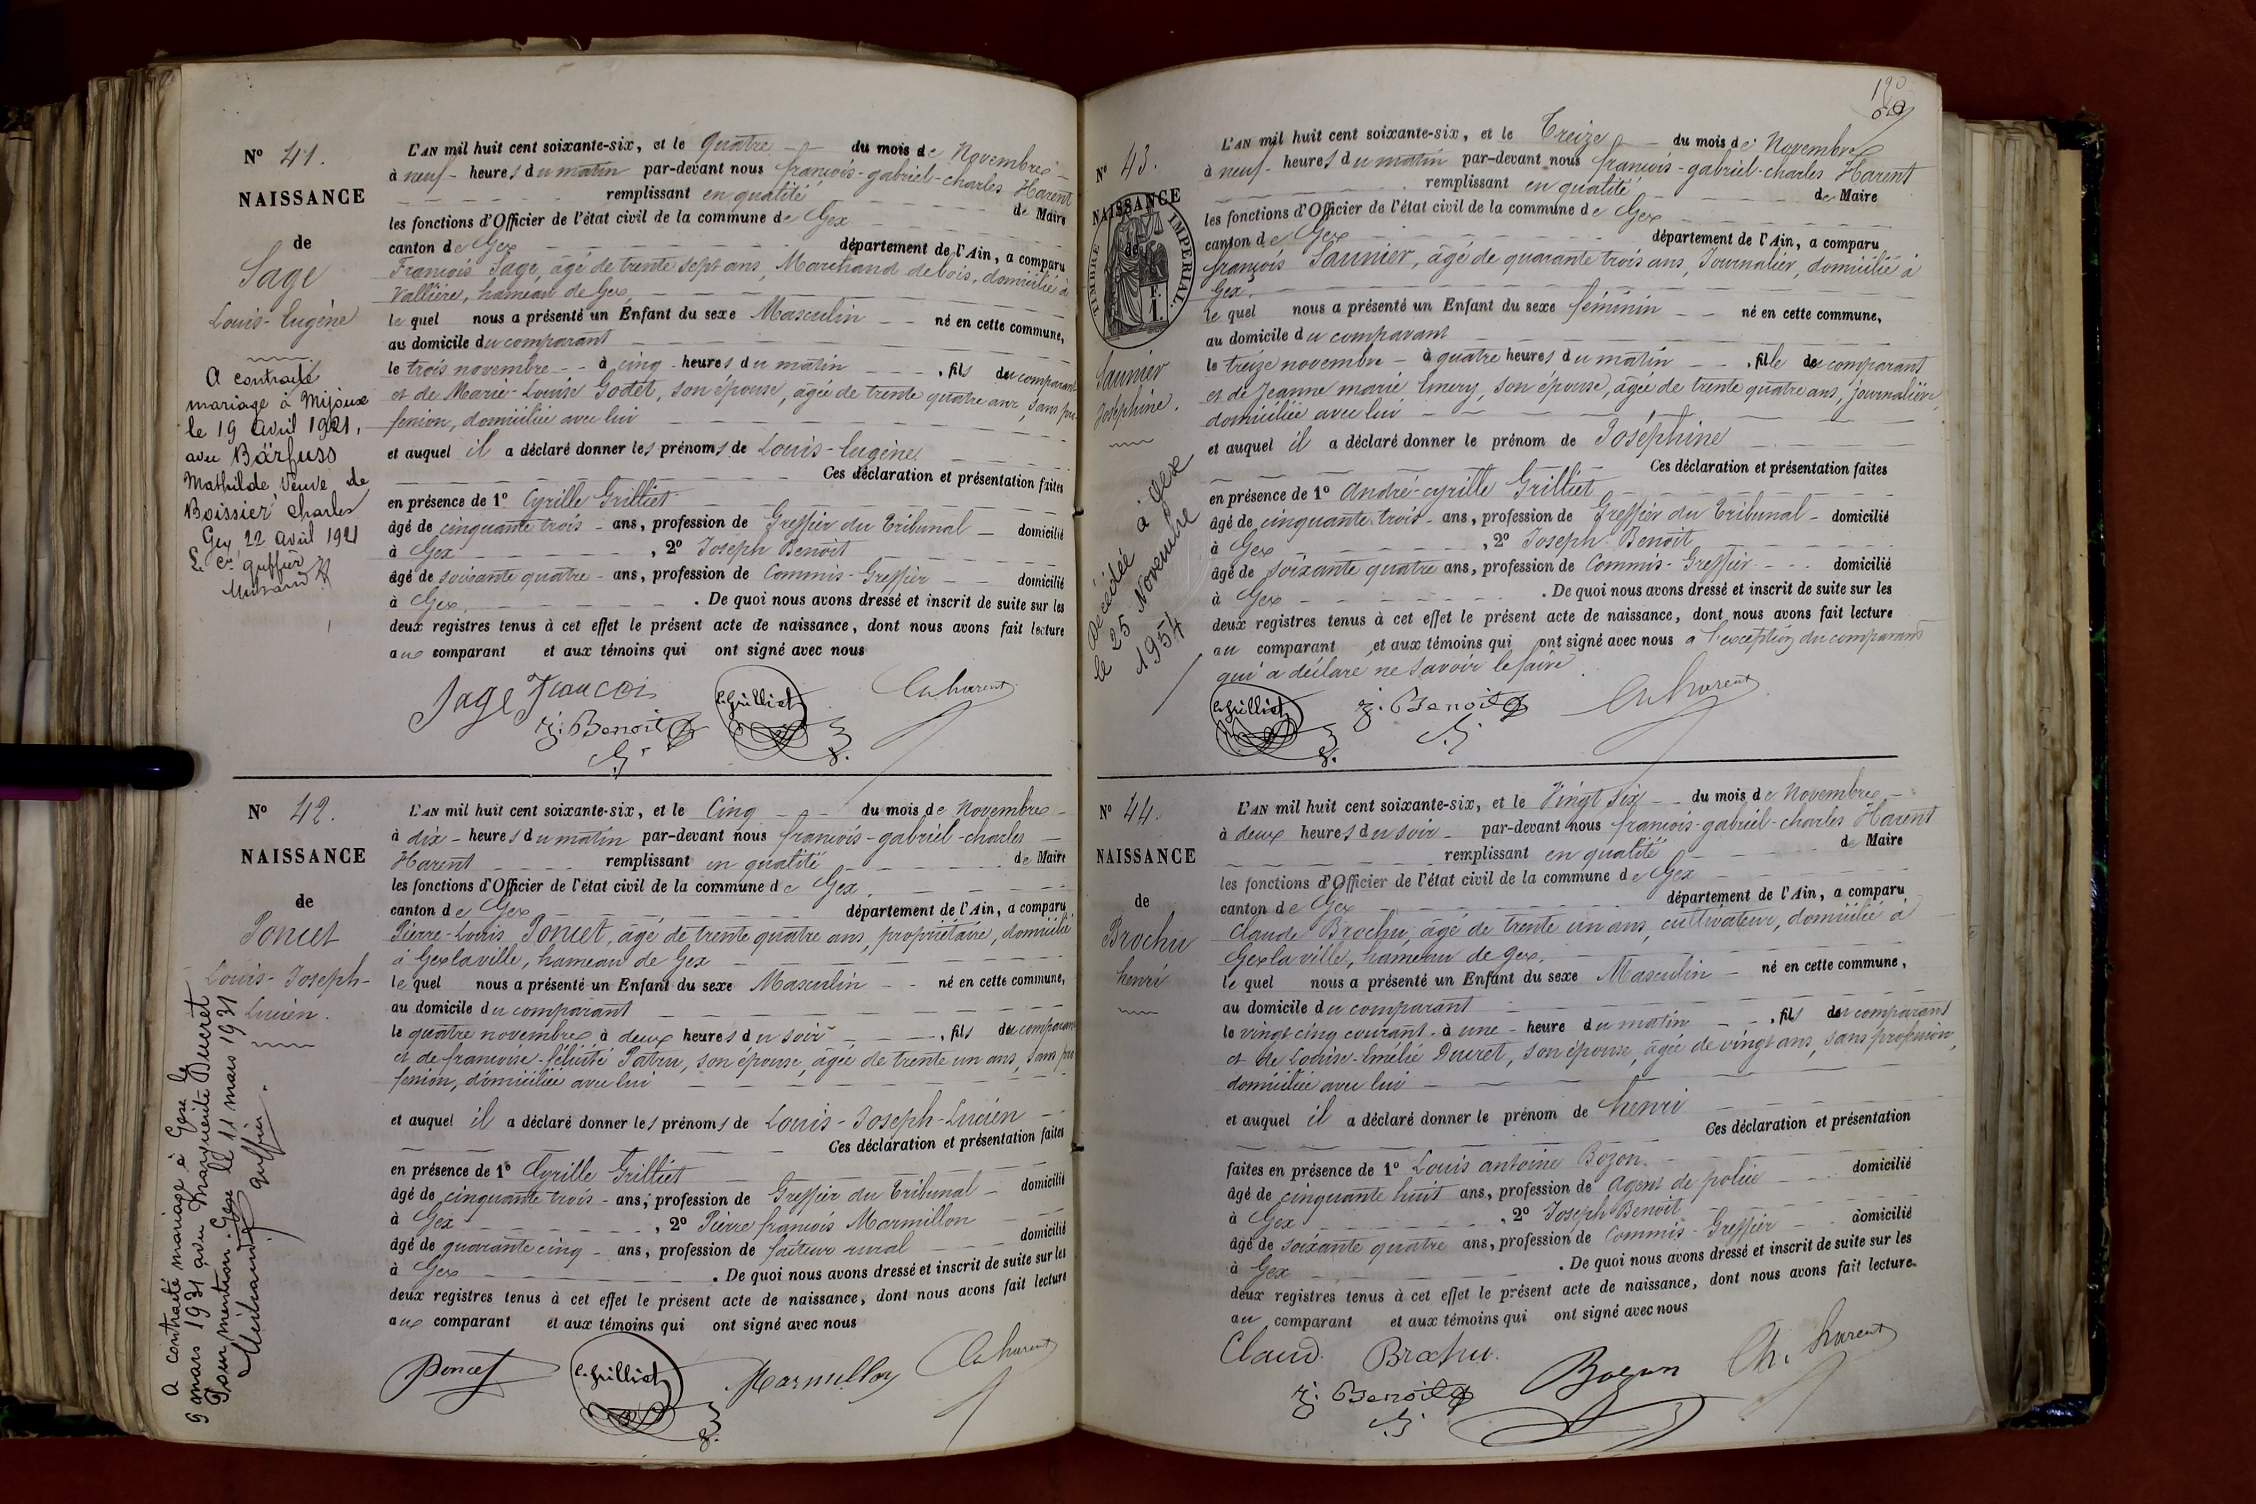 N° 41.
NAISSANCE
de
Sage
Louis-Eugène
A contracté
mariage à Mijoux
le 19 avril 1921,
avec Bärfuss
Mathilde Veuve de
Boissier Charles
Gex 22 avril 1921
Le Cis greffier
L'AN mil huit cent soixante-six, et le quatre du mois de Novembre
à neuf heures du matin par-devant nous françois-gabriel-charles Harent
remplissant en qualité de Maire
les fonctions d'Officier de l'état civil de la commune de Gex
canton de Gex département de l'Ain, a comparu
François Sage, âgé de trente sept ans, Marchand de bois, domicilié à
Vallière, hameau de Gex,
le quel nous a présenté un Enfant du sexe Masculin né en cette commune,
au domicile du comparant
le trois novembre à cinq heures du matin, fils du comparant
et de Marie-Louise Godet, son épouse, âgée de trente quatre ans, sans pro
fession, domiciliée avec lui
et auquel il a déclaré donner les prénoms de Louis-Eugène
Ces déclaration et présentation faites
en présence de 1° Cyrille Grilliet
âgé de cinquante trois ans, profession de Greffier du Tribunal domicilié
à Gex, 2° Joseph Benoit
âgé de soixante quatre ans, profession de Commis-Greffier domicilié
à Gex. De quoi nous avons dressé et inscrit de suite sur les
deux registres tenus à cet effet le présent acte de naissance, dont nous avons fait lecture
aux comparant et aux témoins qui ont signé avec nous
Sage François C. Grilliet Ch harent
J: Benoit
N° 42.
NAISSANCE
de
Poncet
Louis-Joseph-
Lucien.
A contracté mariage à Gex le
9 mars 1931 avec Marguerite Ducret
Pour mention. Gex le 11 mars 1931
greffier.
L'AN mil huit cent soixante-six, et le Cinq du mois de Novembre
à dix heures du matin par-devant nous françois-gabriel-charles
Harent remplissant en qualité de Maire
les fonctions d'Officier de l'état civil de la commune de Gex.
canton de Gex département de l'Ain, a comparu
Pierre-Louis Poncet, âgé de trente quatre ans, propriétaire, domicilié
à Gexlaville, hameau de Gex
le quel nous a présenté un Enfant du sexe Masculin né en cette commune,
au domicile du comparant
le quatre novembre à deux heures du soir, fils du comparant
et de françoise-félicité Patru, son épouse, âgée de trente un ans, sans pro
fession, domiciliée avec lui
et auquel il a déclaré donner les prénoms de Louis-Joseph-Lucien
Ces déclaration et présentation faites
en présence de 1° Cyrille Grilliet
âgé de cinquante trois ans, profession de Greffier du Tribunal domicilié
à Gex, 2° Pierre françois Marmillon
âgé de quarante cinq ans, profession de facteur rural domicilié
à Gex. De quoi nous avons dressé et inscrit de suite sur les
deux registres tenus à cet effet le présent acte de naissance, dont nous avons fait lecture
aux comparant et aux témoins qui ont signé avec nous
Poncet C. Grilliet Marmillon Ch harent
190
N° 43.
NAISSANCE
de
TIMBRE IMPERIAL.
F.
1.
Saunier
Joséphine.
Décédée à Gex
le 25 Novembre
1954
L'AN mil huit cent soixante-six, et le Treize du mois de Novembre
à neuf heures du matin par-devant nous françois-gabriel-charles Harent
remplissant en qualité de Maire
les fonctions d'Officier de l'état civil de la commune de Gex
canton de Gex département de l'Ain, a comparu
françois Saunier, âgé de quarante trois ans, Journalier, domicilié à
Gex.
le quel nous a présenté un Enfant du sexe féminin né en cette commune,
au domicile du comparant
le treize novembre à quatre heures du matin, fille du comparant
et de Jeanne marie Emery, son épouse, âgée de trente quatre ans, journalière,
domiciliée avec lui
et auquel il a déclaré donner le prénom de Joséphine
Ces déclaration et présentation faites
en présence de 1° André-cyrille Grilliet
âgé de cinquante trois ans, profession de Greffier du Tribunal domicilié
à Gex, 2° Joseph Benoit
âgé de soixante quatre ans, profession de Commis-Greffier domicilié
à Gex. De quoi nous avons dressé et inscrit de suite sur les
deux registres tenus à cet effet le présent acte de naissance, dont nous avons fait lecture
au comparant et aux témoins qui ont signé avec nous à l'exception du comparant
qui a déclaré ne savoir le faire
C. Grilliet J: Benoit Ch harent
N° 44.
NAISSANCE
de
Brochu
henri
L'AN mil huit cent soixante-six, et le Vingt Six du mois de Novembre
à deux heures du soir par-devant nous françois-gabriel-charles Harent
remplissant en qualité de Maire
les fonctions d'Officier de l'état civil de la commune de Gex
canton de Gex département de l'Ain, a comparu
Claude Brochu, âgé de trente un ans, cultivateur, domicilié à
Gexlaville, hameau de gex.
le quel nous a présenté un Enfant du sexe Masculin né en cette commune,
au domicile du comparant
le vingt cinq courant à une heure du matin, fils du comparant
et de Louise-Emélie Ducret, son épouse, âgée de vingt ans, sans profession,
domiciliée avec lui
et auquel il a déclaré donner le prénom de henri
Ces déclaration et présentation
faites en présence de 1° Louis antoine Bozon.
âgé de cinquante huit ans, profession de agent de police domicilié
à Gex, 2° Joseph Benoit
âgé de soixante quatre ans, profession de Commis-Greffier domicilié
à Gex. De quoi nous avons dressé et inscrit de suite sur les
deux registres tenus à cet effet le présent acte de naissance, dont nous avons fait lecture
au comparant et aux témoins qui ont signé avec nous
Claud. Brochu. Bozon Ch. harent
J: Benoit